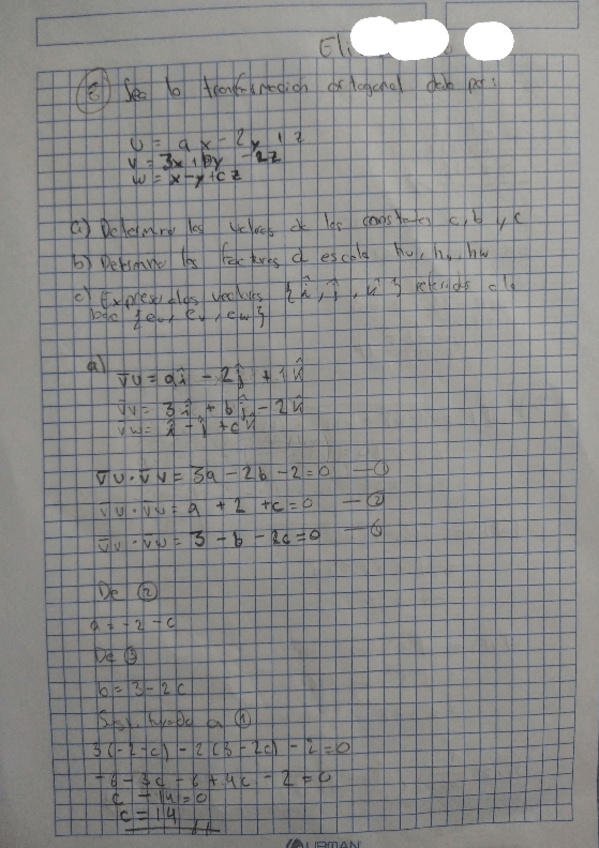 Eli
② Sea la transformación ortogonal dada por:
u = ax - 2y + z
v = 3x + by - 2z
w = x - y + cz
a) Determine los valores de las constantes a, b y c
b) Determine los factores de escala hu, hv, hw
c) Exprese los vectores {î, ĵ, k̂} referidos a la
base {eu, ev, ew}
a)
∇u = aî - 2ĵ + 1k̂
∇v = 3î + bĵ - 2k̂
∇w = î - ĵ + ck̂
∇u·∇v = 3a - 2b - 2 = 0 —①
∇u·∇w = a + 2 + c = 0 —②
∇v·∇w = 3 - b - 2c = 0 —③
De ②
a = -2 - c
De ③
b = 3 - 2c
Sustituyendo a ①
3(-2-c) - 2(3-2c) - 2 = 0
-6 - 3c - 6 + 4c - 2 = 0
c - 14 = 0
c = 14